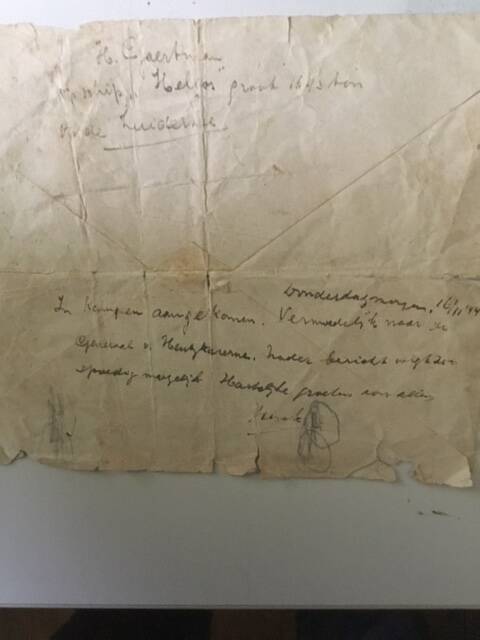 H. Gaertman
schip "Helios" groot 1643 ton
op de Zuiderzee
Donderdagmorgen, 16/11 '44
In Kampen aangekomen. Vermoedelijk naar de
Generaal v. Heutszkazerne. Nader bericht volgt zoo
spoedig mogelijk Hartelijke groeten aan allen